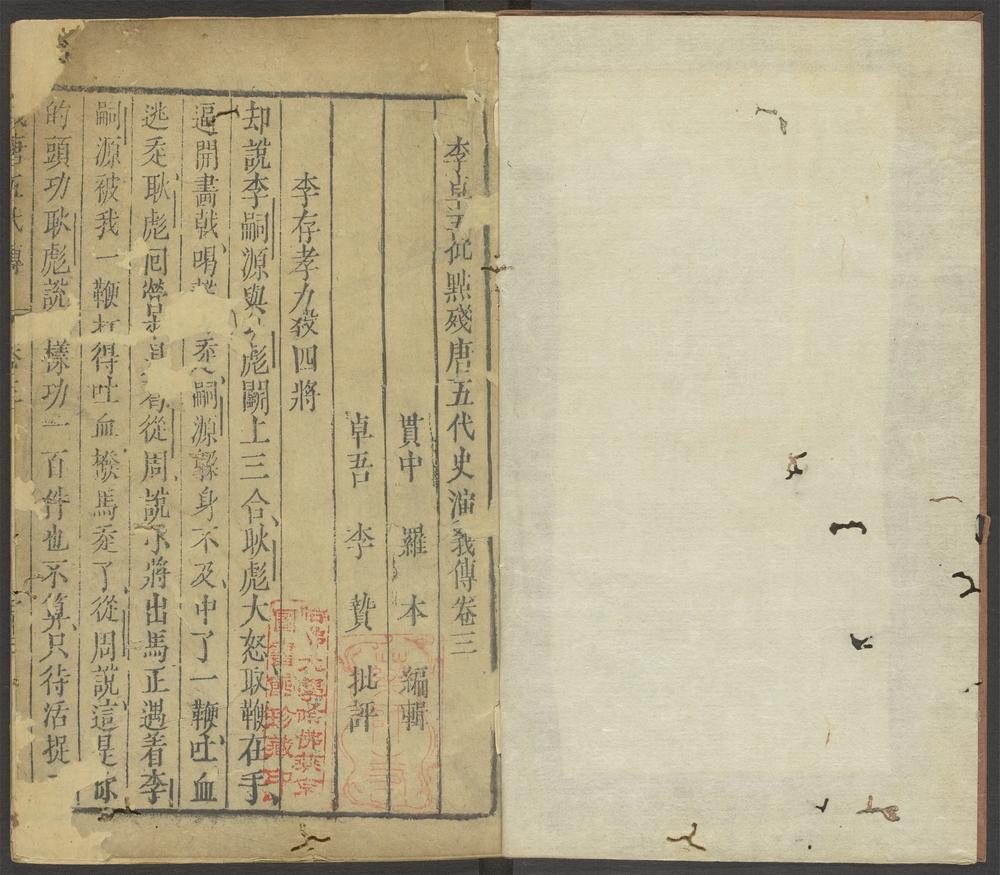 李卓吾批點殘唐五代史演義傳卷三
貫中 羅 本 編輯
卓吾 李 贄 批評
李存孝力殺四將
却說李嗣源與 彪鬭上三合耿彪大怒取鞭在手
逼開畫戟喝 嗣源躱身不及中了一鞭吐血
逃 耿彪回營 從周說小將出馬正遇着李
嗣源被我一鞭打得吐血撥馬 了從周說這是你
的頭功耿彪說 樣功一百件也不算只待活捉
唐五代傳